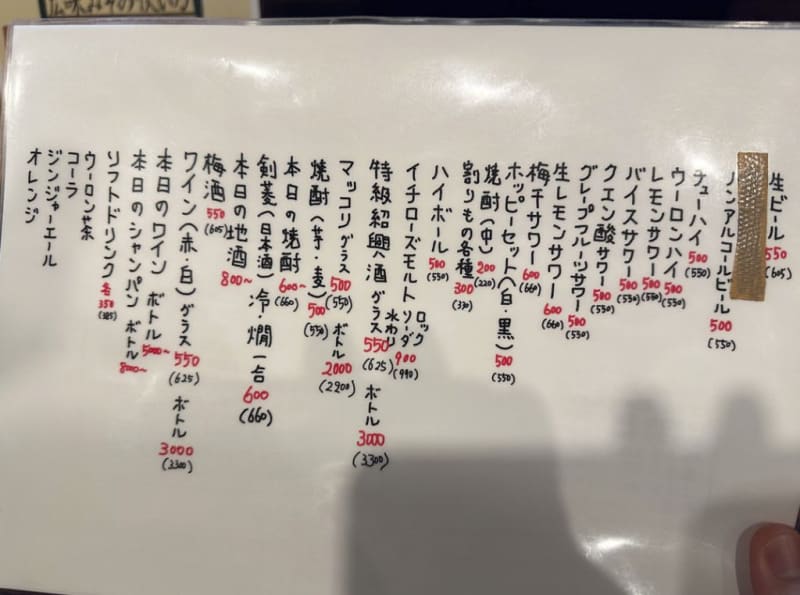 生ビール 550 (605)
ノンアルコールビール 500 (550)
チューハイ 500 (550)
ウーロンハイ 500 (550)
レモンサワー 500 (550)
バイスサワー 500 (550)
クエン酸サワー 500 (550)
グレープフルーツサワー 500 (550)
生レモンサワー 600 (660)
梅干サワー 600 (660)
ホッピーセット(白・黒) 500 (550)
焼酎(中) 200 (220)
割りもの各種 300 (330)
ハイボール 500 (550)
イチローズモルト ロック ソーダ 水わり 900 (990)
特級紹興酒 グラス 550 (625) ボトル 3000 (3300)
マッコリ グラス 500 (550) ボトル 2000 (2200)
焼酎(芋・麦) 500 (550)
本日の焼酎 600~ (660)
剣菱(日本酒) 冷・燗 一合 600 (660)
本日の地酒 800~
梅酒 550 (605)
ワイン(赤・白) グラス 550 (625) ボトル 3000 (3300)
本日のワイン ボトル 5000~
本日のシャンパン ボトル 8000~
ソフトドリンク 各350 (385)
ウーロン茶
コーラ
ジンジャーエール
オレンジ